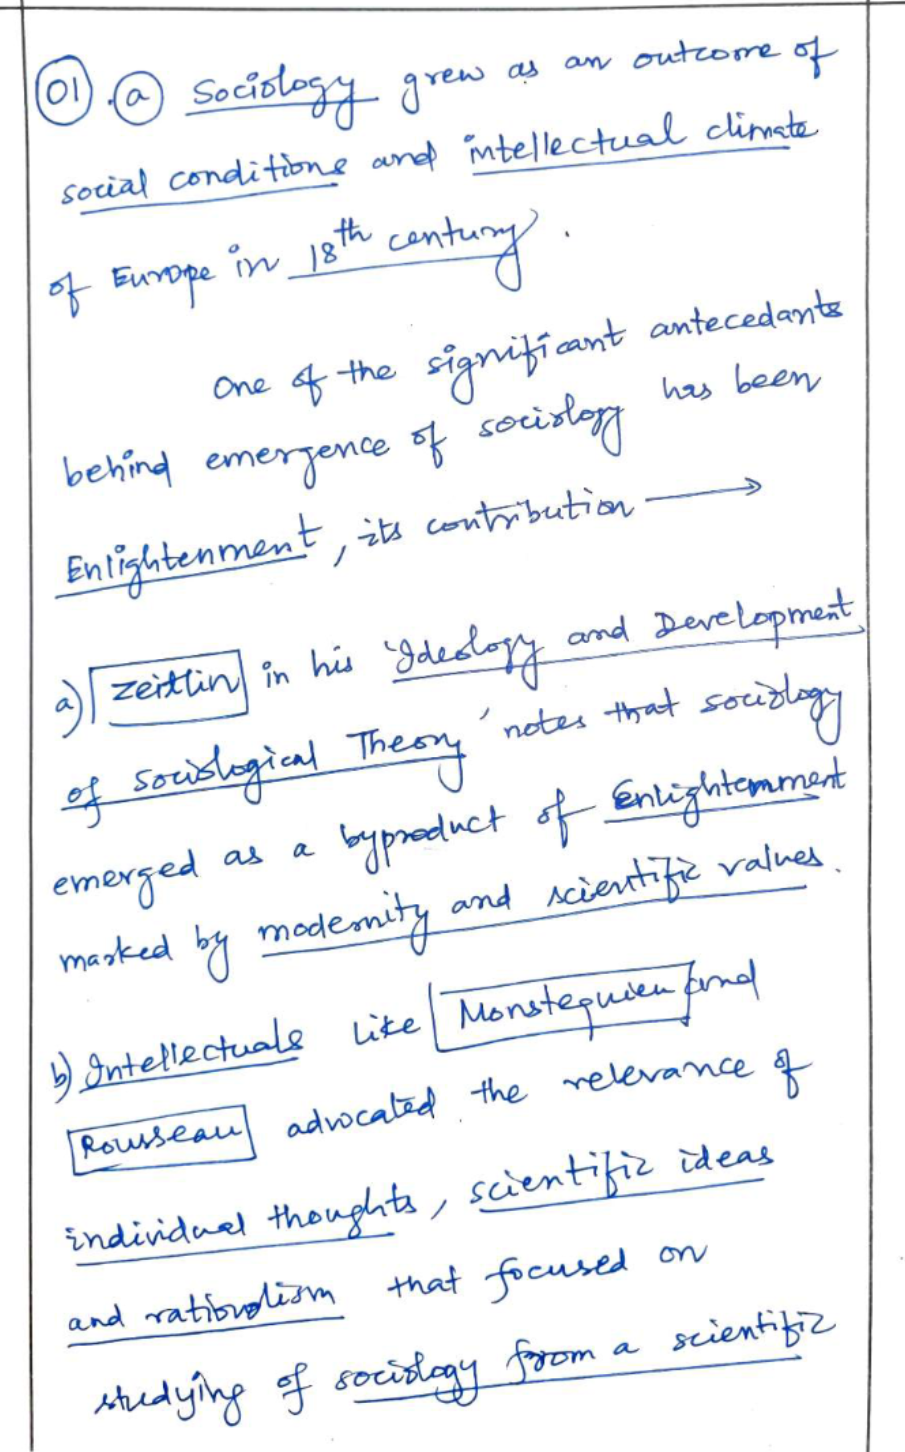 01 . a Sociology grew as an outcome of
social conditions and intellectual climate
of Europe in 18th century .
One of the significant antecedants
behind emergence of sociology has been
Enlightenment, its contribution →
a) Zeitlin in his 'Ideology and Development
of Sociological Theory' notes that sociology
emerged as a byproduct of Enlightenment
marked by modernity and scientific values.
b) Intellectuals like Monstequieu and
Rousseau advocated the relevance of
individual thoughts, scientific ideas
and rationalism that focused on
studying of sociology from a scientific